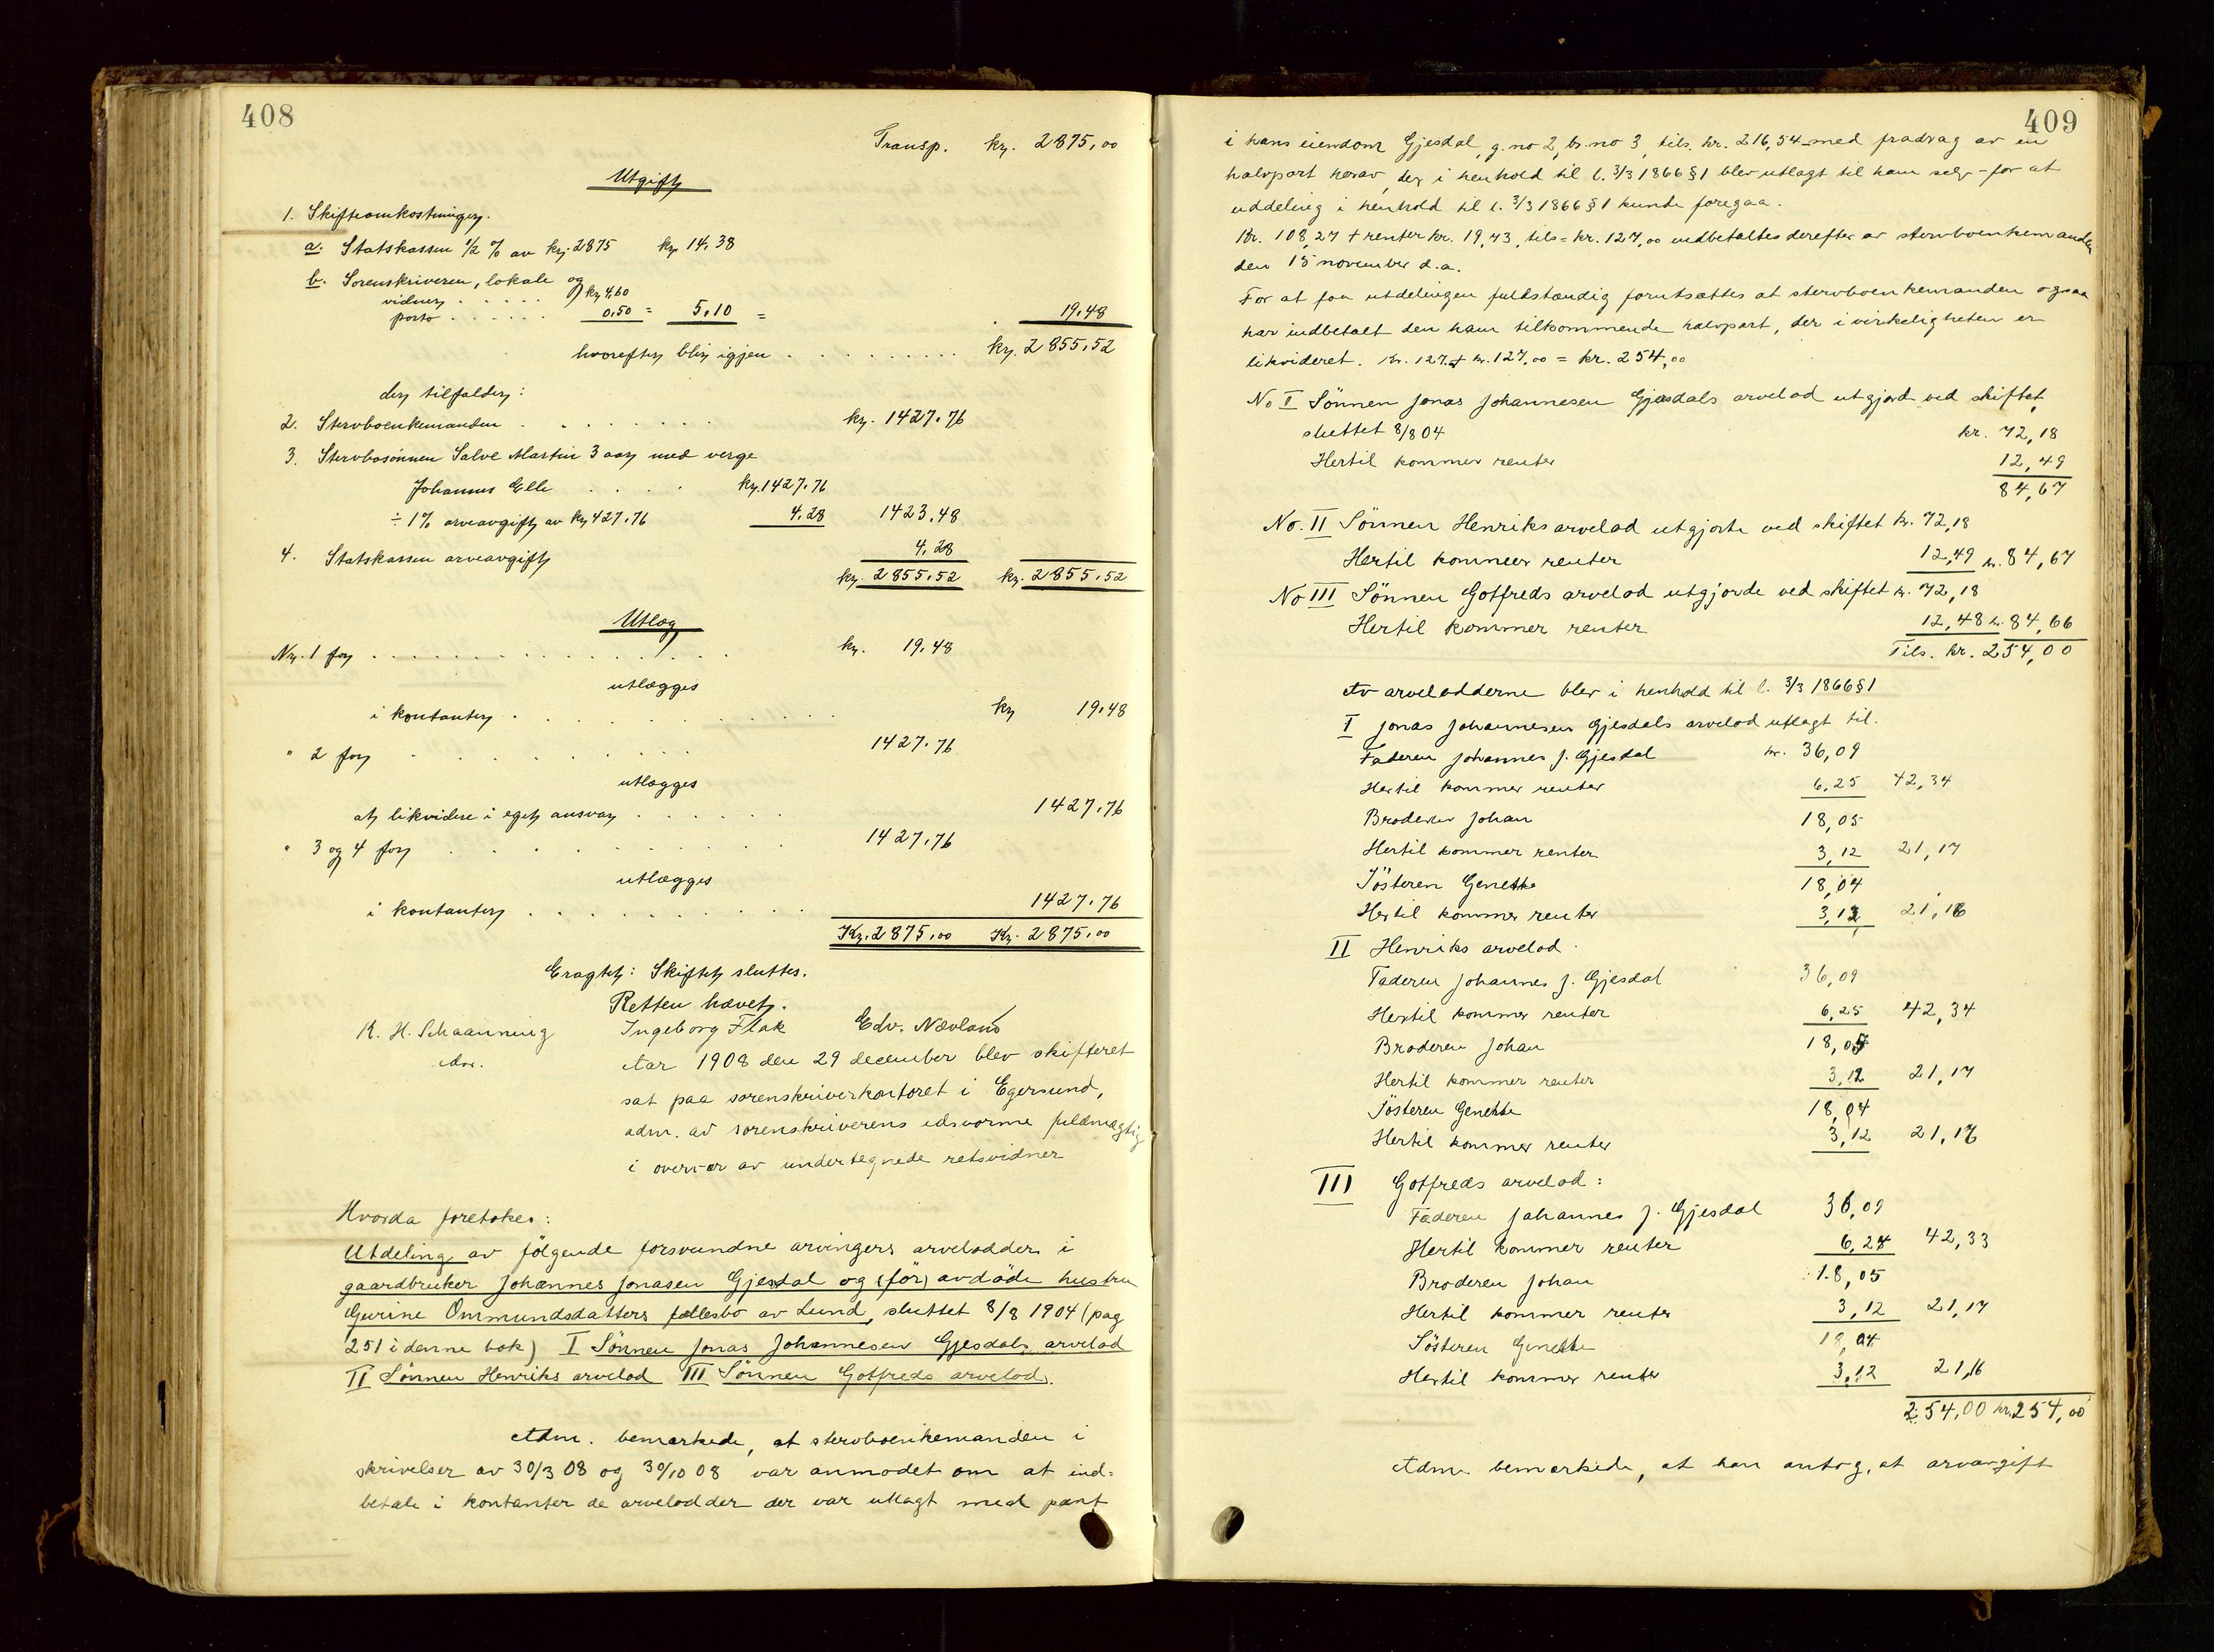 408
Transp. kr. 2875,00
Utgift
1. Skifteomkostninger.
a. Statskassen 1/2 % av kr. 2875 kr. 14,38
b. Sorenskriveren, lokale og
vidner . . . . . kr 4,60
porto . . . . . . 0,50 = 5,10 = . 19,48
hvorefter blir igjen . . . . . . . . . kr. 2855,52
der tilfalder:
2. Stervboenkemanden . . . . . . . kr. 1427,76
3. Stervbosønnen Salve Martin 3 aar med verge
Johannes Elle . . . . kr. 1427,76
÷ 1% arveavgift av kr 427,76 4,28 1423,48
4. Statskassen arveavgift 4,28
kr. 2855,52 kr. 2855,52
Utlæg
Nr. 1 for . . . . . . . . . . . . . . . kr. 19,48
utlægges
i kontanter . . . . . . . . . . . kr 19,48
" 2 for . . . . . . . 1427,76
utlægges
at likvidere i eget ansvar . . . . . . 1427,76
" 3 og 4 for . . . . . . . . . 1427,76
utlægges
i kontanter . . . . . . . . . . 1427,76
Kr. 2875,00 Kr. 2875,00
Eragtet: Skiftet sluttes.
Retten hævet.
K. H. Schaanning Ingeborg Flak Edv. Nævland
edsv.
Aar 1908 den 29 december blev skifteret
sat paa sorenskriverkontoret i Egersund,
adm. av sorenskriverens edsvorne fuldmægtig
i overvær av undertegnede retsvidner
Hvorda foretokes:
Utdeling av følgende forsvundne arvingers arvelodder i
gaardbruker Johannes Jonasen Gjesdal og (før) avdøde hustru
Gurine Ommundsdatters fællesbo av Lund, sluttet 8/8 1904 (pag
251 i denne bok) I Sønnen Jonas Johannesen Gjesdals arvelod
II Sønnen Henriks arvelod III Sønnen Gotfreds arvelod.
Adm. bemerkede, at stervboenkemanden i
skrivelser av 30/3 08 og 30/10 08 var anmodet om at ind-
betale i kontanter de arvelodder der var utlagt med pant
409
i hans eiendom Gjesdal, g. no 2, br. no 3, tils. kr. 216,54 med fradrag av en
halvpart herav, der i henhold til l. 3/3 1866 § 1 blev utlagt til ham selv - for at
uddeling i henhold til l. 3/3 1866 § 1 kunde foregaa.
Kr. 108,27 + renter kr. 19,43, tils = kr. 127,00 indbetaltes derefter av stervboenkemanden
den 15 november d.a.
For at faa utdelingen fuldstændig forutsættes at stervboenkemanden ogsaa
har indbetalt den ham tilkommende halvpart, der i virkeligheten er
likvideret. kr. 127 + kr. 127,00 = kr. 254,00
No I Sönnen Jonas Johannesen Gjesdals arvelod utgjord ved skiftet,
sluttet 8/8 04 kr. 72,18
Hertil kommer renter 12,49
84,67
No. II Sönnen Henriks arvelod utgjorte ved skiftet kr. 72,18
Hertil kommer renter 12,49 kr. 84,67
No III Sönnen Gotfreds arvelod utgjorde ved skiftet kr. 72,18
Hertil kommer renter 12,48 kr. 84,66
Tils. kr. 254,00
Av arvelodderne blev i henhold til l. 3/3 1866 § 1
I Jonas Johannesen Gjesdals arvelod utlagt til.
Faderen Johannes J. Gjesdal kr. 36,09
Hertil kommer renter 6,25 42,34
Broderen Johan 18,05
Hertil kommer renter 3,12 21,17
Søsteren Genette 18,04
Hertil kommer renter 3,12 21,16
II Henriks arvelod.
Faderen Johannes J. Gjesdal 36,09
Hertil kommer renter 6,25 42,34
Broderen Johan 18,05
Hertil kommer renter 3,12 21,17
Søsteren Genette 18,04
Hertil kommer renter 3,12 21,16
III Gotfreds arvelod:
Faderen Johannes J. Gjesdal 36,09
Hertil kommer renter 6,24 42,33
Broderen Johan 18,05
Hertil kommer renter 3,12 21,17
Søsteren Genette 18,04
Hertil kommer renter 3,12 21,16
254,00 kr. 254,00
Adm. bemerkede, at han antog, at arvavgift